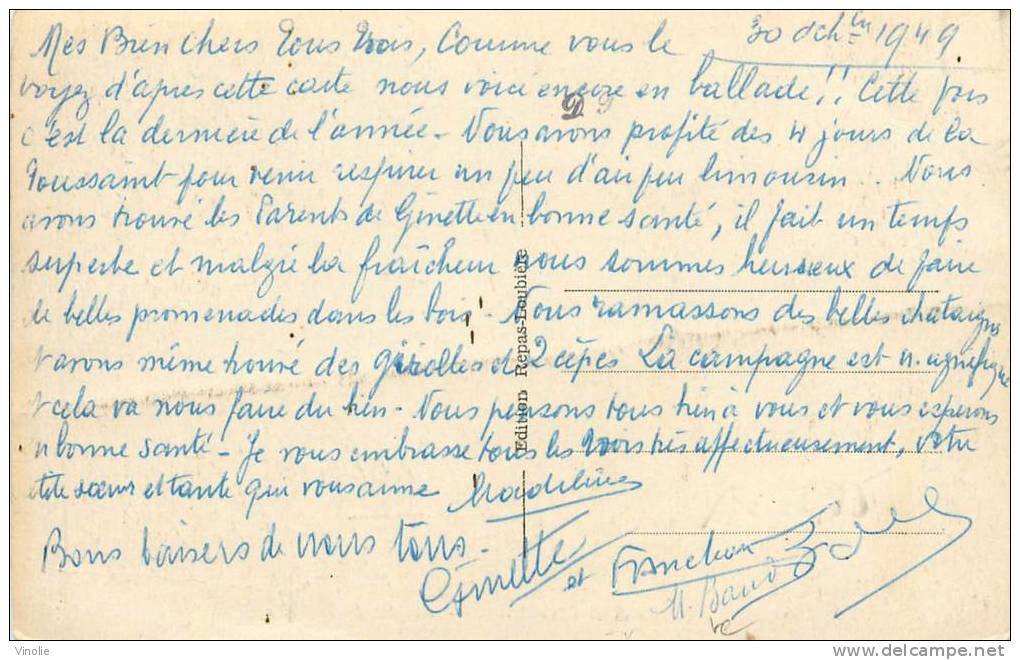 30 Octbre 1949
Mes Bien Chers Tous Trois, Comme vous le
voyez d'après cette carte nous voici encore en ballade!! Cette fois
c'est la dernière de l'année - Nous avons profité des 4 jours de la
Toussaint pour venir respirer un peu d'air pur limousin.. Nous
avons trouvé les Parents de Ginette en bonne santé, il fait un temps
superbe et malgré la fraîcheur nous sommes heureux de faire
de belles promenades dans les bois - Nous ramassons des belles chataignes
et avons même trouvé des girolles et 2 cèpes La campagne est magnifique
et cela va nous faire du bien - Nous pensons tous bien à vous et vous esperons
en bonne santé - Je vous embrasse tous les trois très affectueusement, votre
petite sœur et tante qui vous aime Madeleine
Bons baisers de nous tous -
Ginette et Franchon
Edition Repas-Loubière
Vinolie
www.delcampe.net